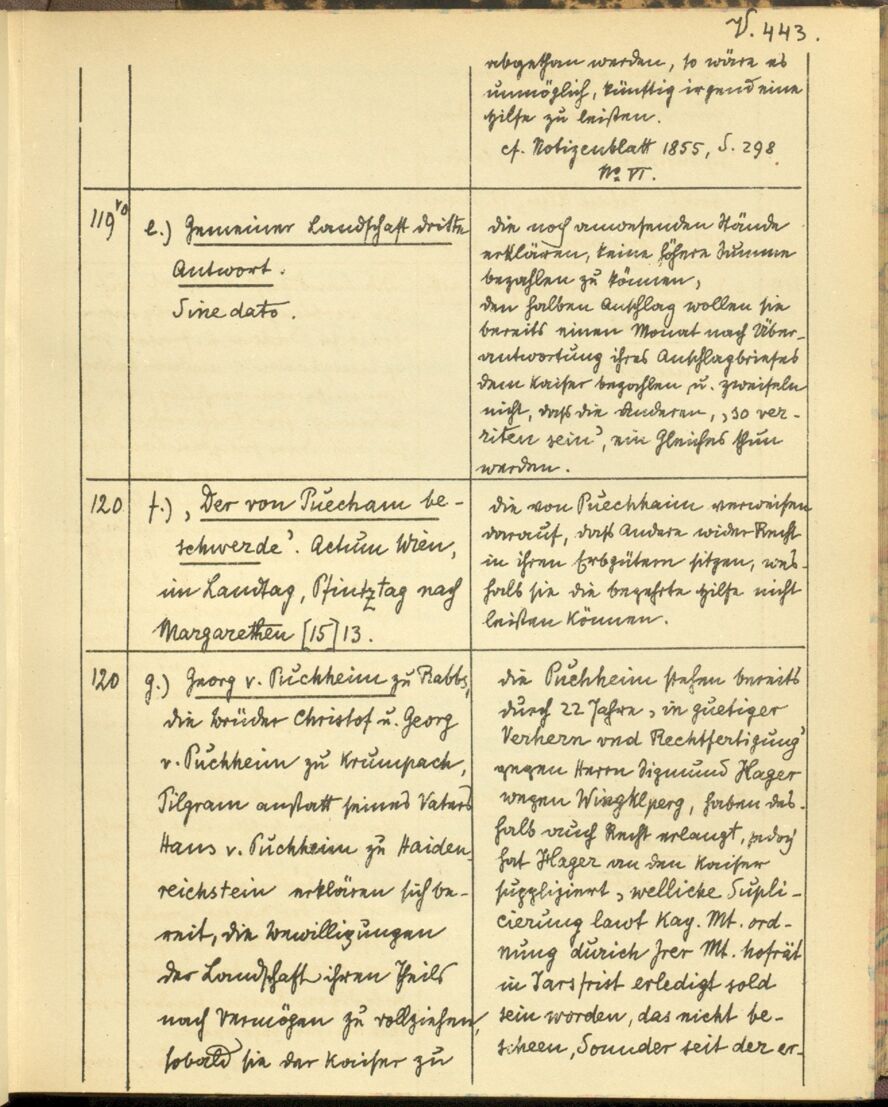 V. 443.
abgethan werden, so wäre es
unmöglich, künftig irgend eine
Hilfe zu leisten.
cf. Notizenblatt 1855, S. 298
No VI.
119vo
e.) Gemeiner Landschaft dritte
Antwort.
Sine dato.
die noch anwesenden Stände
erklären, keine höhere Summe
bezahlen zu können,
den halben Anschlag wollen sie
bereits einen Monat nach Über-
antwortung ihres Anschlagbriefes
dem Kaiser bezahlen u. zweifeln
nicht, daß die Anderen, ‚so ver-
riten sein‘, ein Gleiches thun
werden.
120
f.) ‚Der von Puecham be-
schwerde‘. Actum Wien,
im Landtag, Pfintztag nach
Margarethen [15]13.
die von Puechhaim verweisen
darauf, daß Andere wider Recht
in ihren Erbgütern sitzen, wes-
halb sie die begehrte Hilfe nicht
leisten können.
120
g.) Georg v. Puchheim zu Rabbs,
die Brüder Christof u. Georg
v. Puchheim zu Krumpach,
Pilgram anstatt seines Vaters
Hans v. Puchheim zu Haiden-
reichstein erklären sich be-
reit, die Bewilligungen
der Landschaft ihren Theils
nach Vermögen zu vollziehen,
sobald sie der Kaiser zu
die Puchheim stehen bereits
durch 22 Jahre ‚in guetiger
Verhern vnd Rechtfertigung‘
gegen Herrn Sigmund Hager
wegen Wingklperg, haben des-
halb auch Recht erlangt, jedoch
hat Hager an den Kaiser
suppliziert ‚welliche Supli-
cierung lawt Kay. Mt. ord-
nung durich Irer Mt. hofrät
in Jarsfrist erledigt sold
sein worden, das nicht be-
scheen, Sonnder seit der er-